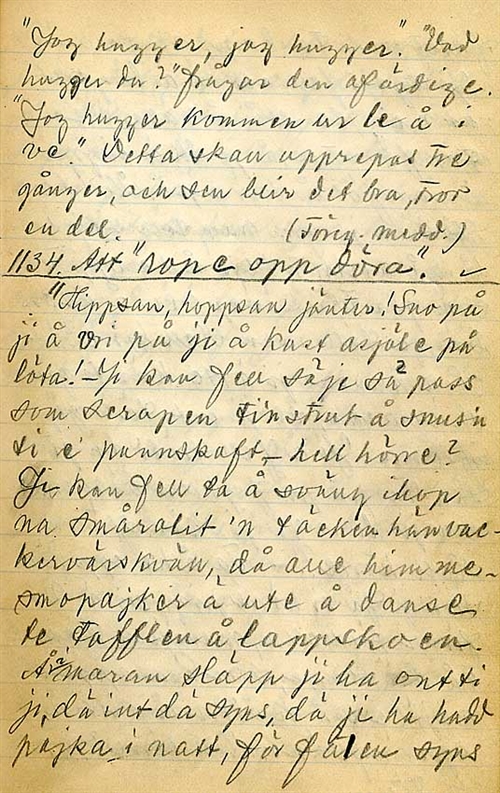 "Jag hugger, jag hugger." "Vad
hugger du?" frågar den afärdige.
"Jag hugger kommen ur le å i
ve." Detta skau upprepas tre
gånger, och sen blir det bra, tror
en del. (Föreg. medd.)
1134. Att "rope opp döra".
"Hippsan, hoppsan jänter! Sno på
ji å vri på ji å kast asjåle på
löta! – Ji kan fell säje så pass
som scrapen tinstrut å snusn
ti e pannskaft, – hell hörre?
Ji kan fell ta å sväng ihop
na småvalit 'n täcken hän vac-
kervärskväu, då aue him me-
smopajker ä ute å danse
te tofflen å lappskoen.
Å maran släpp ji ha ont ti
ji, dä int dä syns, då ji ha hadd
pajka i natt, för fålen syns